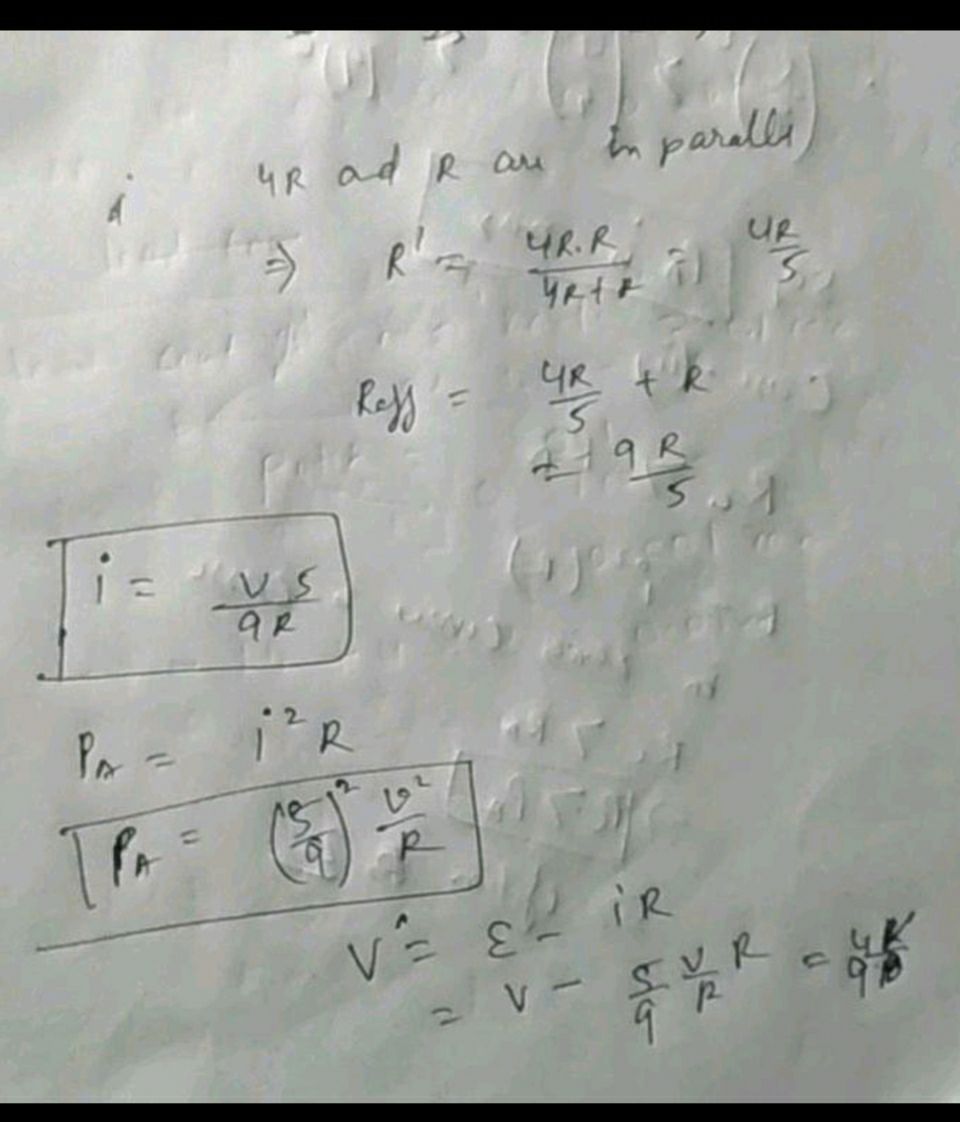 4R ad R are in parallel
⇒ R' = 4R.R / 4R+R = 4R/5
Reff = 4R/5 + R
= 9R/5
i = V5 / 9R
PA = i²R
PA = (5/9)² V²/R
V^ = ε - iR
= V - 5/9 V/R R = 4V/9